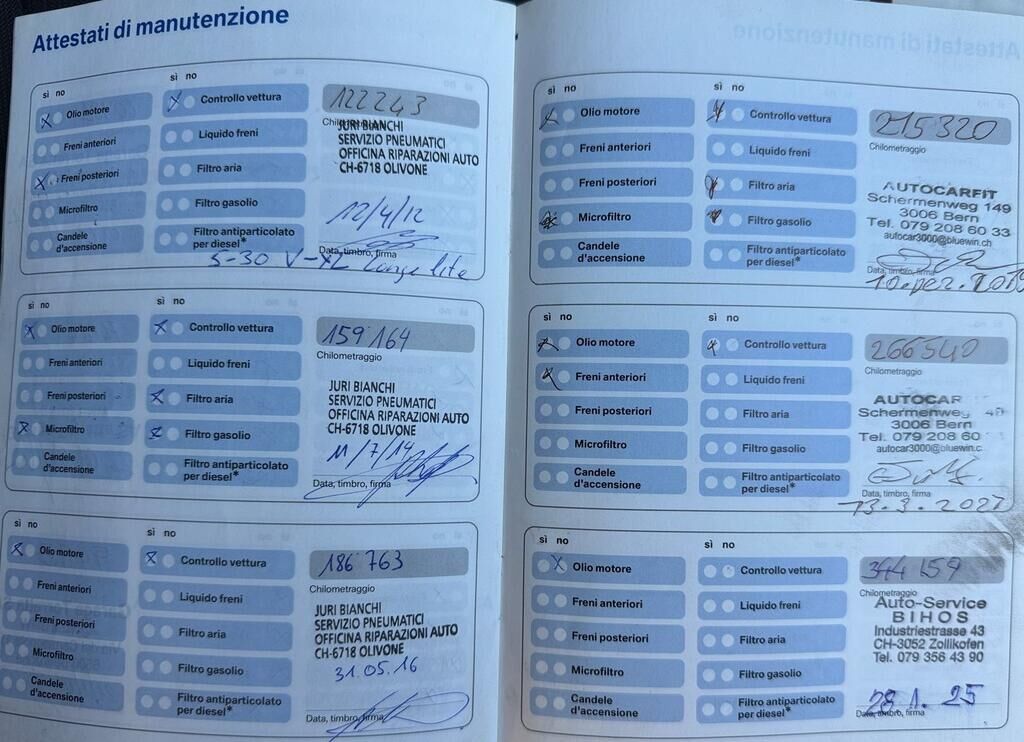 Attestati di manutenzione
sì no
sì no
Olio motore
Controllo vettura
122243
Chilometraggio
Freni anteriori
Liquido freni
JURI BIANCHI
SERVIZIO PNEUMATICI
OFFICINA RIPARAZIONI AUTO
CH-6718 OLIVONE
Freni posteriori
Filtro aria
Microfiltro
Filtro gasolio
12/4/12
Candele
d'accensione
Filtro antiparticolato
per diesel*
Data, timbro, firma
5-30 V-XL Longe life
sì no
sì no
Olio motore
Controllo vettura
159164
Chilometraggio
Freni anteriori
Liquido freni
JURI BIANCHI
SERVIZIO PNEUMATICI
OFFICINA RIPARAZIONI AUTO
CH-6718 OLIVONE
Freni posteriori
Filtro aria
Microfiltro
Filtro gasolio
11/7/14
Candele
d'accensione
Filtro antiparticolato
per diesel*
Data, timbro, firma
sì no
sì no
Olio motore
Controllo vettura
186 763
Chilometraggio
Freni anteriori
Liquido freni
JURI BIANCHI
SERVIZIO PNEUMATICI
OFFICINA RIPARAZIONI AUTO
CH-6718 OLIVONE
Freni posteriori
Filtro aria
31.05.16
Microfiltro
Filtro gasolio
Candele
d'accensione
Filtro antiparticolato
per diesel*
Data, timbro, firma
sì no
sì no
Olio motore
Controllo vettura
215320
Chilometraggio
Freni anteriori
Liquido freni
Freni posteriori
Filtro aria
AUTOCARFIT
Schermenweg 149
3006 Bern
Tel. 079 208 60 33
autocar3000@bluewin.ch
Microfiltro
Filtro gasolio
Candele
d'accensione
Filtro antiparticolato
per diesel*
Data, timbro, firma
10.Dez.2019
sì no
sì no
Olio motore
Controllo vettura
266540
Chilometraggio
Freni anteriori
Liquido freni
Freni posteriori
Filtro aria
AUTOCAR
Schermenweg 49
3006 Bern
Tel. 079 208 60
autocar3000@bluewin.c
Microfiltro
Filtro gasolio
Candele
d'accensione
Filtro antiparticolato
per diesel*
Data, timbro, firma
13.3.202
sì no
sì no
Olio motore
Controllo vettura
344 159
Chilometraggio
Freni anteriori
Liquido freni
Auto-Service
BIHOS
Industriestrasse 43
CH-3052 Zollikofen
Tel. 079 356 43 90
Freni posteriori
Filtro aria
Microfiltro
Filtro gasolio
Candele
d'accensione
Filtro antiparticolato
per diesel*
28.1.25
Data, timbro, firma